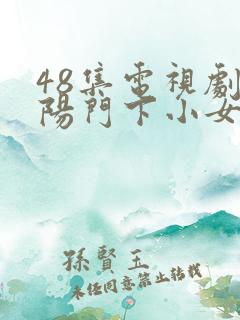 48集電視劇
陽門下小女
孫賢玉
未经同意禁止转载